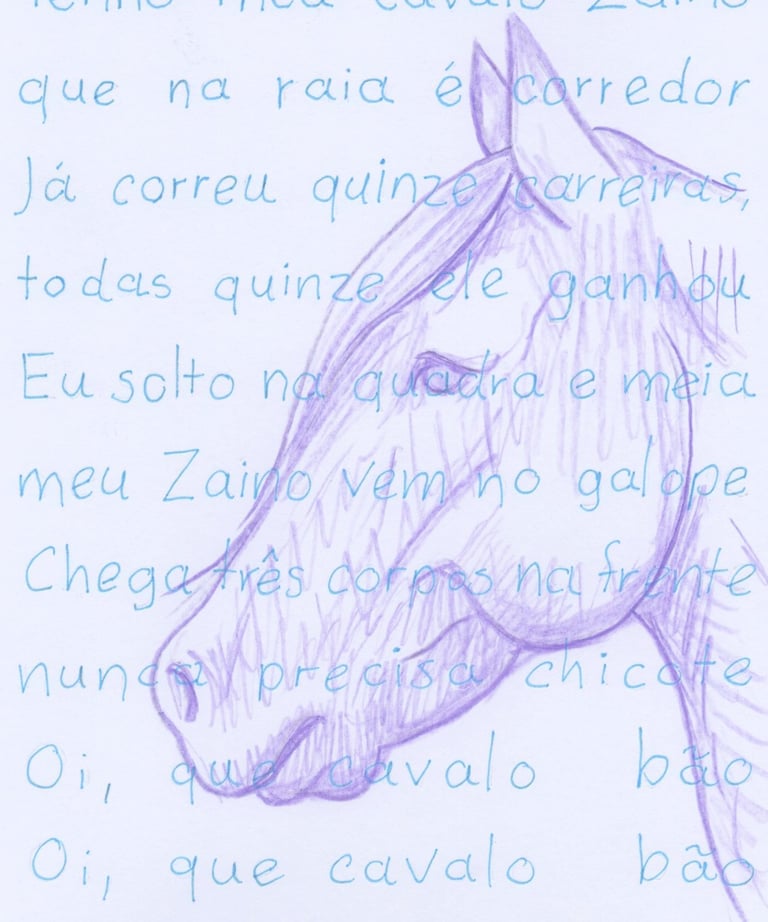 Tenho meu cavalo Zaino
que na raia é corredor
Já correu quinze carreiras,
todas quinze ele ganhou
Eu solto na quadra e meia
meu Zaino vem no galope
Chega três corpos na frente
nunca precisa chicote
Oi, que cavalo bão
Oi, que cavalo bão